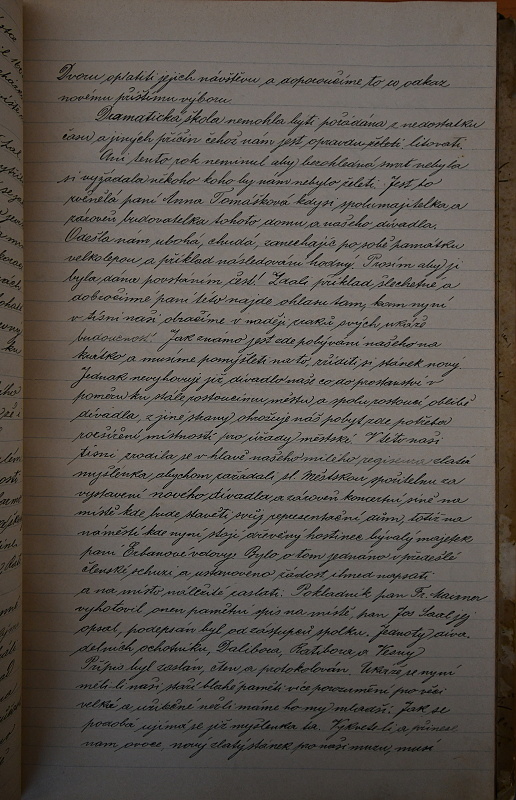 Dvoru oplatiti jejich návštěvu a doporoučíme to co odkaz
novému příštímu výboru.
Dramatická škola nemohla býti pořádána z nedostatku
času a jiných příčin čehož nám jest opravdu želeti, litovati.
Ani tento rok neminul aby bezohledná smrt nebyla
si vyžádala někoho koho by nám nebylo želeti. Jest to
zvěčnělá paní Anna Tomášková kdysi spolumajitelka a
zároveň budovatelka tohoto domu a našeho divadla.
Odešla nám ubohá, chudá, zanechajíc po sobě památku
velkolepou a příklad následování hodný. Prosím aby jí
byla dána povstáním čest! Zdali příklad šlechetné a
dobročinné paní této najde ohlasu tam, kam nyní
v tísni naší obracíme v naději zraků svých, ukáže
budoucnost. Jak známo jest zde pobývání našeho na
krátko a musíme pomýšleti na to, zříditi si stánek nový
Jednak nevyhovuje již divadlo naše co do prostornosti v
poměru ku stále rostoucímu městu a spolu rostoucí oblibě
divadla, z jiné strany ohrožuje náš pobyt zde potřeba
rozšíření místností pro úřady městské. V této naší
tísni zrodila se v hlavě našeho milého regisseura zlatá
myšlenka, abychom zažádali sl. Městskou spořitelnu za
vystavení nového divadla a zároveň koncertní síně na
místě kde bude stavěti svůj representační dům, totiž na
náměstí kde nyní stojí dřevěný hostinec bývalý majetek
paní Erbanové vdovy. Bylo o tom jednáno v předešlé
členské schůzi a ustanoveno žádost ihned napsati
a na místo náležité zaslati. Pokladník pan Fr.
vyhotovil onen pamětní spis na místě, pan Jos. Saal jej
opsal, podepsán byl od zástupců spolku, jednoty diva-
delních ochotníků, Dalibora, Ratibora a Vesny
Přípis byl zaslán, čten a protokolován. Ukáže se nyní
měli-li naši staří blahé paměti více porozumění pro věci
velké a ušlechtilé nežli máme ho my mladší. Jak se
podobá ujímá se již myšlenka ta. Vykvete-li a přinese
nám ovoce, nový zlatý stánek pro naši musu, musí